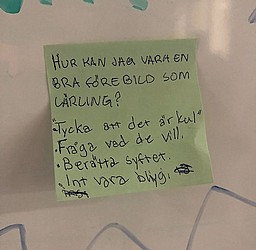 HUR KAN JAG VARA EN
BRA FÖREBILD SOM
LÄRLING?
"Tycka att det är kul"
• Fråga vad de vill.
• Berätta syftet.
• Int vara blyg.